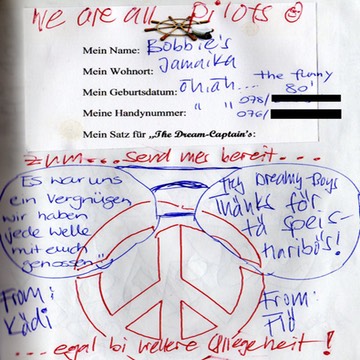 We are all Pilots
Mein Name: Bobbie's
Mein Wohnort: Jamaika
Mein Geburtsdatum: öhäh... the funny 80'
Meine Handynummer: " " 078/
076/
Mein Satz für „The Dream-Captain's:
zum... send mes bereit...
Es war uns
ein Vergnügen
wir haben
jede Welle
mit euch
genossen
Hey Dreamy Boys
Thänks för
tä speis-
Haribo's!
From:
Kädi
From:
Flö
... egal bi wellere Glägeheit!